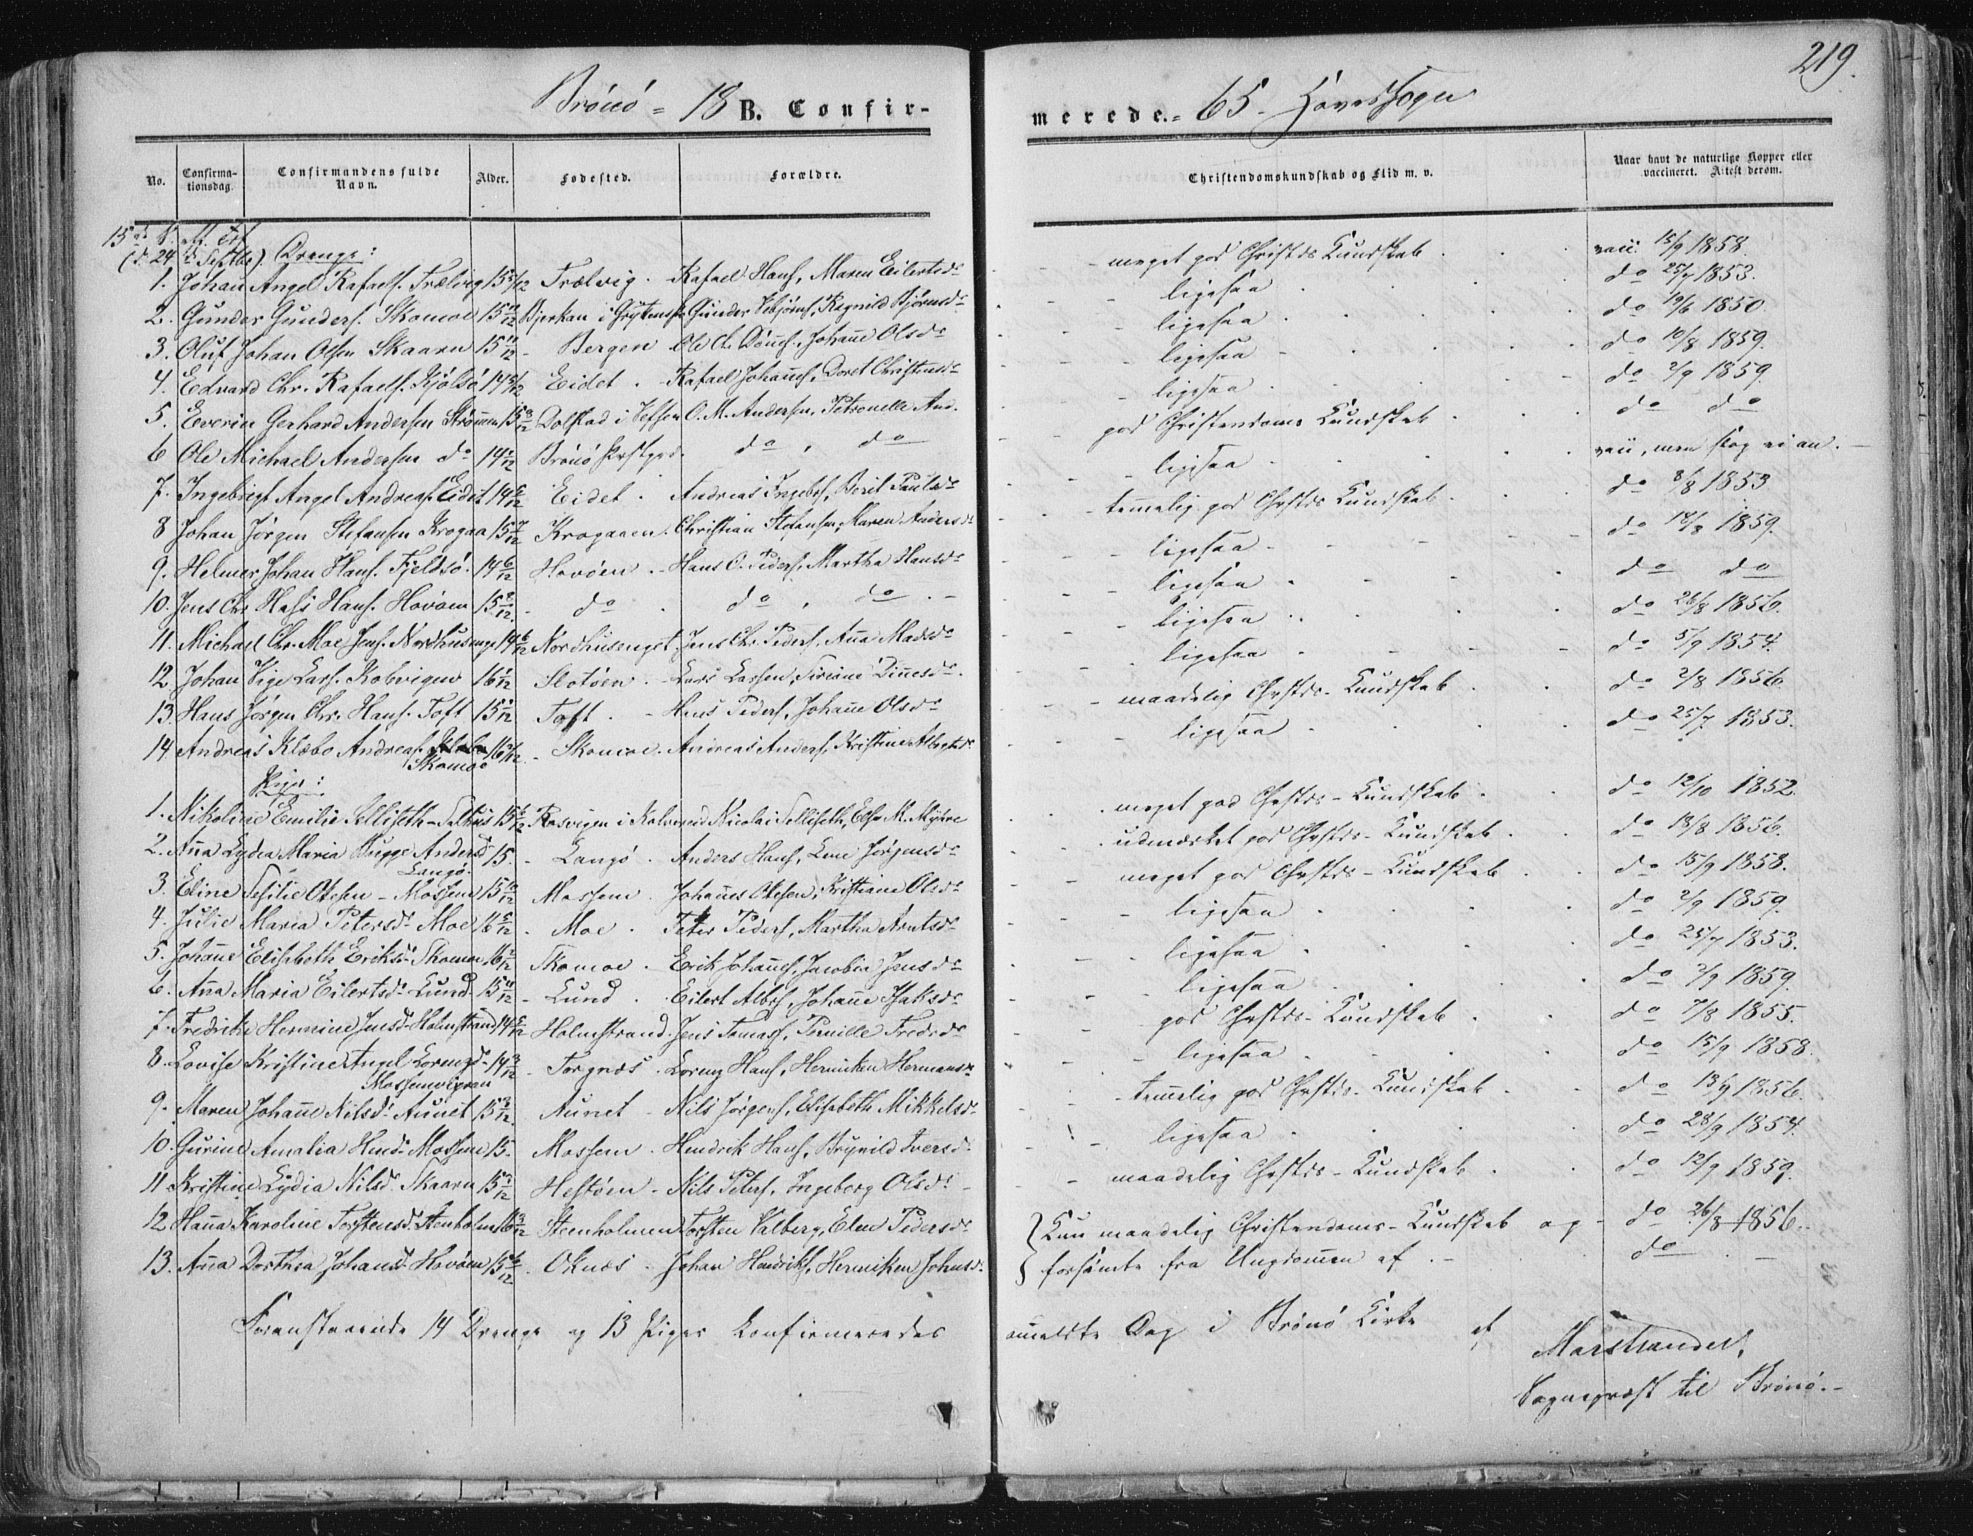 219.
Brönö = 18 B. Confir-
merede. = 65. Hovedsogn
No. Confirmationsdag. Confirmandens fulde Navn. Alder. Fødested. Forældre. Christendomskundskab og Flid m. v. Naar havt de naturlige Kopper eller vaccineret. Attest derom.
15de S. Trf.
(d. 24de Septbr). Drenge:
1. Johan Angel Rafaels. Trælvig 15 Trælvig. Rafael Hans. Maren Eilertsdr meget god Christds Kundskab vacc. 15/9 1858
2. Gunder Gunders. Skomoe 15 Bjerkan i Gunder Ragnild Björnsdr ligesaa do 25/7 1853.
3. Oluf Johan Olsen Skaarn 15 Bergen Ole Johanne Olsdr ligesaa do 19/6 1850.
4. Edvard Chr. Rafaels. Kjölsö 14 Eidet. Rafael Johans. Doret Christensdr ligesaa do 10/8 1859.
5. Everin Gerhard Andersen Strömmen 15 Dolstad i Vefsen O. M. Andersen, Petronelle And. ligesaa do 2/9 1859.
6 Ole Michael Andersen do 14 Brönö do, do god Christendoms Kundskab do do
7. Ingebrigt Angel Andreas. Eidet 14 Eidet. Andreas Ingebrs, Berit Paulsdr ligesaa vacc, men slog ei an.
8 Johan Jörgen Stefansen Krogaa 15 7/12 Krogaaen. Christian Stefansen, Maren Andersdr temmelig god Chrstds Kundskab do 8/8 1853
9. Helmer Johan Hans. Fjeldsö. 14 6/12 Hovöen Hans O. Peders, Martha Hansdr ligesaa do 17/8 1859.
10. Jens Chr. Hans. Hovöen 15 do do, do ligesaa do do
11. Michael Chr. Moe Jens. Nordhuseng 14 Nordhusenget Jens Chr. Peders, Anna Madsdr ligesaa do 26/8 1856.
12 Johan Vige Lars. Kobvigen 16 Slotöen Lars Larsen, Siriane Dinesdr ligesaa do 5/9 1854.
13 Hans Jörgen Chr. Hans. Toft 15 Toft. Hans Peders, Johanne Olsdr maadelig Chrstds-Kundskab do 2/8 1856
14 Andreas Klæbo Andreas. Skomoe 16 Skomoe. Andreas Anders, Kristine ligesaa do 25/7 1853.
Piger:
1. Nikoline Emilie Selliseth - Salhus 15 Rosvigen i Nicolai Selliseth, Else M. Myhre meget god Chrstds-Kundskab do 12/10 1852.
2. Anna Lydia Maria Bugge Andersd Langö. 15 Langö. Anders Hans, Lene Jörgensdr udmærket god Chrstds-Kundskab do 18/8 1856.
3. Eline Otesen - Mossem 15 Mossem. Johannes Otesen, Kristiane Olsdr meget god Chrstds-Kundskab do 15/9 1858.
4. Julie Maria Petersdr Moe 16 Moe. Peter Peders, Martha Arntsdr ligesaa do 2/9 1859.
5. Johanne Elisabeth Eriksdr Skomoe 16 Skomoe. Erik Johans, Jacobia Jensdr ligesaa do 25/7 1853.
6. Anna Maria Eilertsdr Lund. 15 Lund. Eilert Albr, Johanne Isaksdr ligesaa do 2/9 1859.
7. Fredrikke Hermine Jensd. Holmstrand 14 Holmstrand Jens Tomass, Pernille Fredsdr god Chrstds-Kundskab do 7/8 1855.
8. Lovise Kristine Angel Lorensd. Mossemvigen 14 Torgnæs. Lorenz Hans, Henriken Hermansdr ligesaa do 15/9 1858.
9. Maren Johanne Nilsdr Aunet 15 Aunet Nils Jörgens, Elisabeth Mikkelsdr temmelig god Chrstds-Kundskab do 13/9 1856.
10. Gurine Amalia Hendr. Mossem 15. Mossem Hendrik Hans, Brynild Iversdr ligesaa do 28/9 1854.
11. Kristine Lydia Nilsd. Skaarn 15 Hestöen Nils Peters, Ingeborg Olsdr maadelig Chrstds-Kundskab do 12/9 1859.
12 Hanna Karoline Torstensd. Stenholm 16 Steenholmen Torsten Valberg, Elen Pedersdr Kun maadelig Christendoms-Kundskab og do 26/8 1856.
13. Anna Dorthea Johansd. Hovöen 15 Oknæs. Johan Hendriks, Henriken Johnsdr forsömte fra Ungdommen af. do
Foranstaaende 14 Drenge og 13 Piger confirmeredes anmeldte Dag i Brönö Kirke af
Marstrander,
Sognepræst til Brönö.